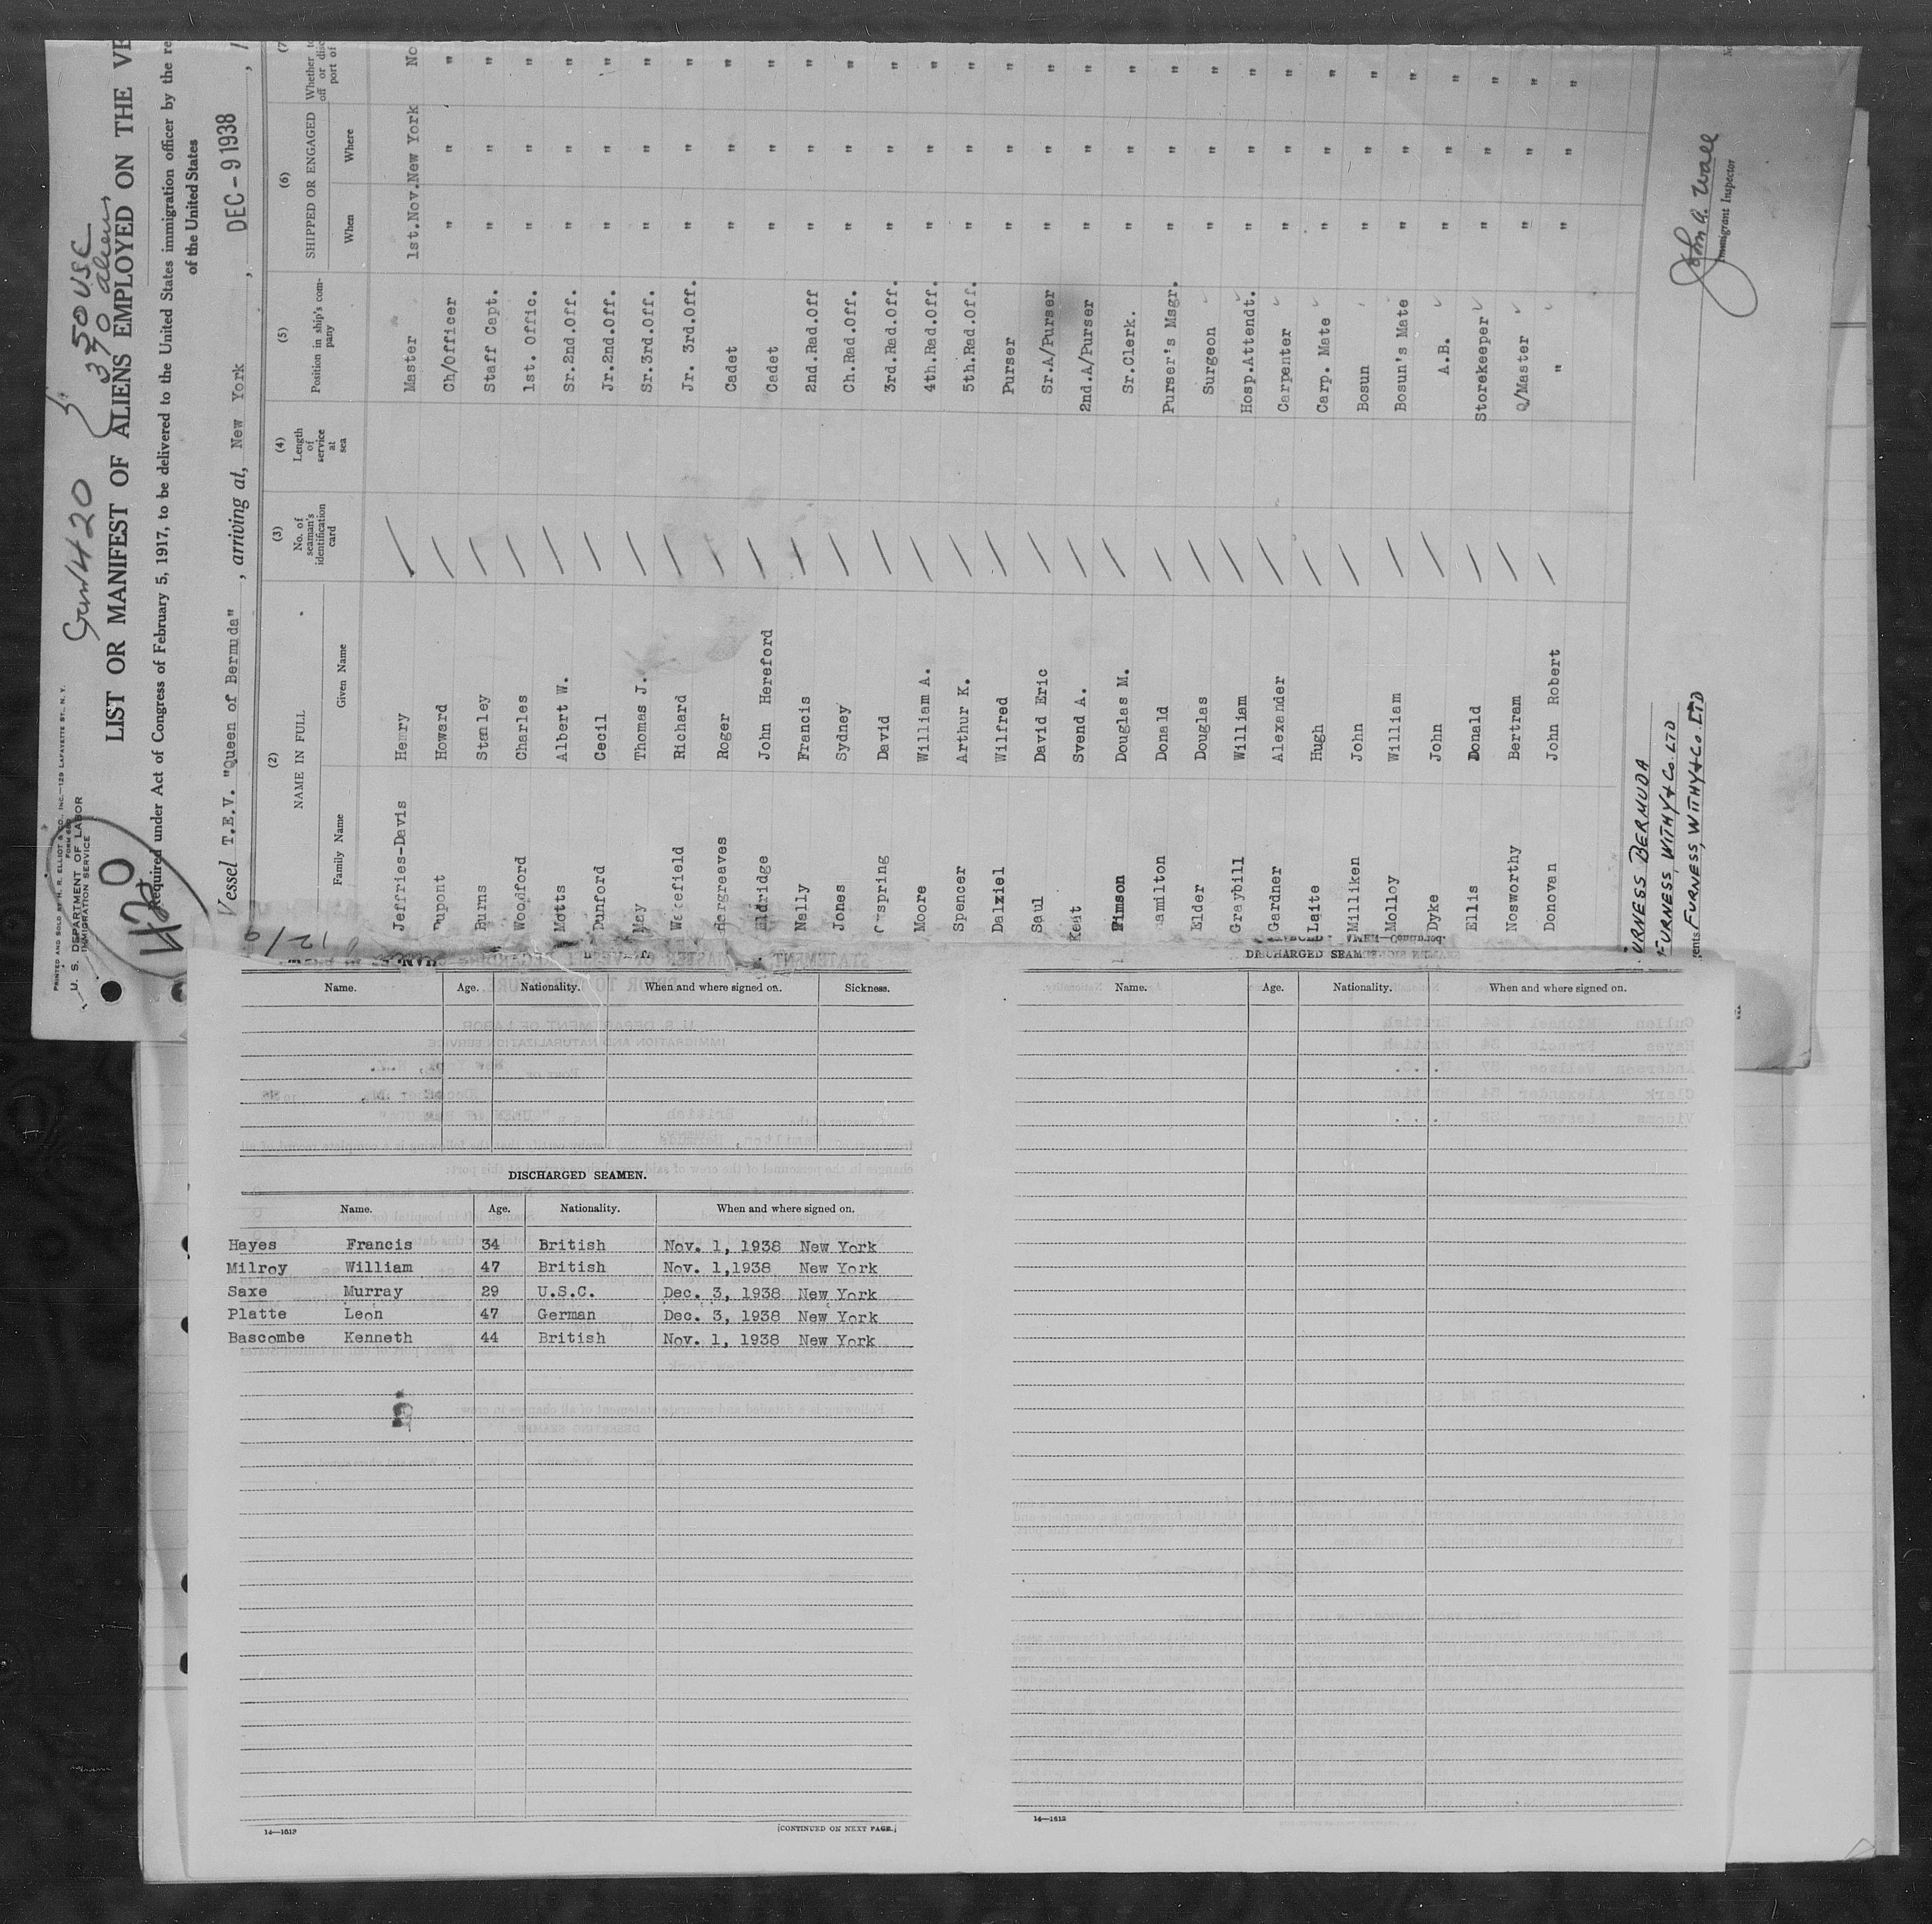 PRINTED AND SOLD BY H. R. ELLIOT & CO., INC.—129 LAFAYETTE ST., N. Y.
U. S. DEPARTMENT OF LABOR
IMMIGRATION SERVICE
420
420
5
50 USC
370 aliens
LIST OR MANIFEST OF ALIENS EMPLOYED ON THE VE
Required under Act of Congress of February 5, 1917, to be delivered to the United States immigration officer by the re
of the United States
Vessel T.E.V. "Queen of Bermuda" , arriving at, New York , DEC - 9 1938 , 1
(2) (3) (4) (5) (6) (7
NAME IN FULL No. of seaman's identification card Length of service at sea Position in ship's company SHIPPED OR ENGAGED Whether to off or disc port of
Family Name Given Name When Where
Jeffries-Davis Henry Master 1st.Nov. New York No
Dupont Howard Ch/Officer " " "
Burns Stanley Staff Capt. " " "
Woodford Charles 1st. Offic. " " "
Motts Albert W. Sr.2nd.Off. " " "
Dunford Cecil Jr.2nd.Off. " " "
May Thomas J. Sr.3rd.Off. " " "
Wakefield Richard Jr. 3rd.Off. " " "
Hargreaves Roger Cadet " " "
Eldridge John Hereford Cadet " " "
Nally Francis 2nd.Rad.Off " " "
Jones Sydney Ch.Rad.Off. " " "
David 3rd.Rad.Off. " " "
Moore William A. 4th.Rad.Off. " " "
Spencer Arthur K. 5th.Rad.Off. " " "
Dalziel Wilfred Purser " " "
Saul David Eric Sr.A/Purser " " "
Keat Svend A. 2nd.A/Purser " " "
Timson Douglas M. Sr.Clerk. " " "
Hamilton Donald Purser's Msgr. " " "
Elder Douglas Surgeon " " "
Graybill William Hosp.Attendt. " " "
Gardner Alexander Carpenter " " "
Laite Hugh Carp. Mate " " "
Milliken John Bosun " " "
Molloy William Bosun's Mate " " "
Dyke John A.B. " " "
Ellis Donald Storekeeper " " "
Nosworthy Bertram Q/Master " " "
Donovan John Robert " " " "
URNESS BERMUDA
FURNESS, WITHY & Co. LTD
ents FURNESS, WITHY & Co. LTD
John A. Wall
Immigrant Inspector
Name. Age. Nationality. When and where signed on. Sickness.
DISCHARGED SEAMEN.
Name. Age. Nationality. When and where signed on.
Hayes Francis 34 British Nov. 1, 1938 New York
Milroy William 47 British Nov. 1,1938 New York
Saxe Murray 29 U.S.C. Dec. 3, 1938 New York
Platte Leon 47 German Dec. 3, 1938 New York
Bascombe Kenneth 44 British Nov. 1, 1938 New York
14—1613
[CONTINUED ON NEXT PAGE.]
DISCHARGED SEAMEN
Name. Age. Nationality. When and where signed on.
14—1613